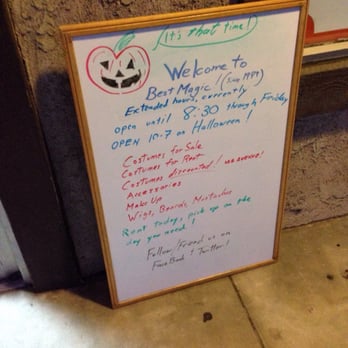 It's that time!
Welcome to
Best Magic! (Since 1979)
Extended hours, currently
open until 8:30 through Friday
OPEN 10-7 on Halloween!
Costumes for Sale
Costumes for Rent
Costumes discounted!
Accessories
Make Up
Wigs, Beards, Mustaches
Rent today, pick up on the
day you need!
Follow/Friend us on
FaceBook & Twitter!